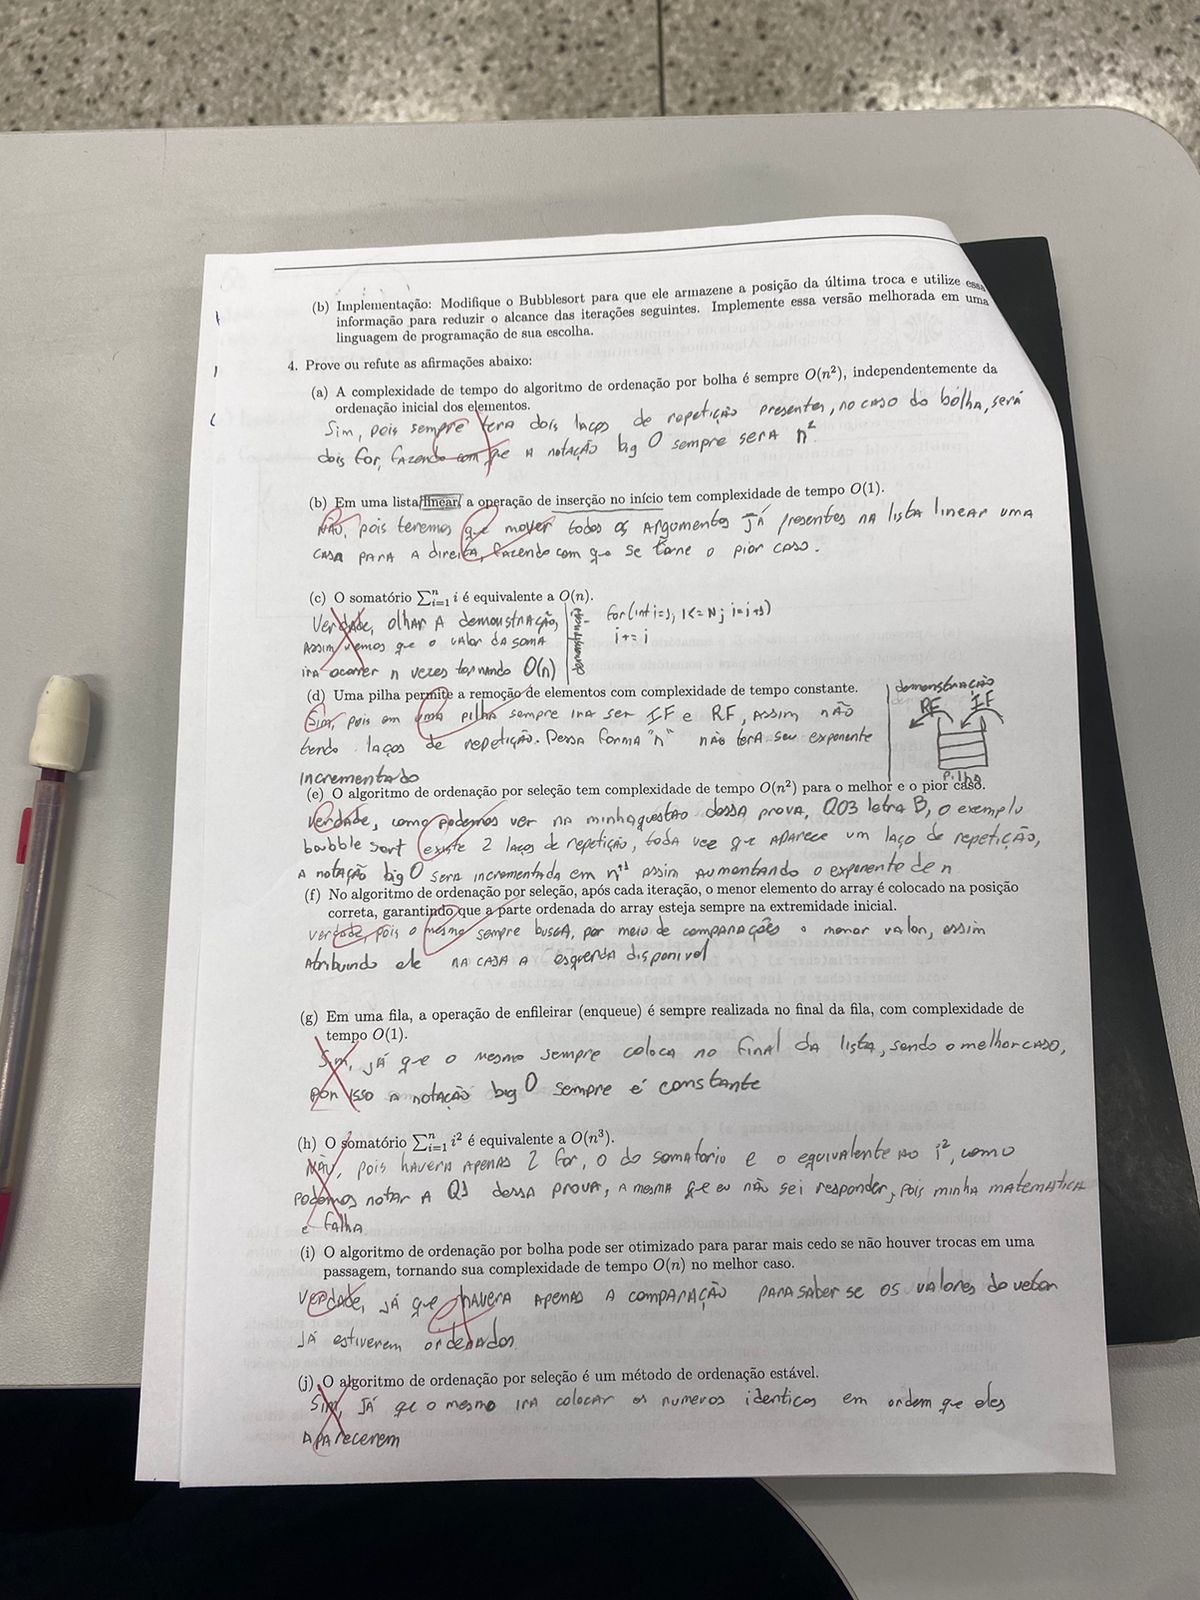 (b) Implementação: Modifique o Bubblesort para que ele armazene a posição da última troca e utilize essa
informação para reduzir o alcance das iterações seguintes. Implemente essa versão melhorada em uma
linguagem de programação de sua escolha.
4. Prove ou refute as afirmações abaixo:
(a) A complexidade de tempo do algoritmo de ordenação por bolha é sempre O(n²), independentemente da
ordenação inicial dos elementos.
Sim, pois sempre terá dois laços de repetição presentes, no caso do bolha, será
dois for, fazendo com que a notação big O sempre será n²
(b) Em uma lista linear, a operação de inserção no início tem complexidade de tempo O(1).
Não, pois teremos que mover todos os argumentos já presentes na lista linear uma
casa para a direita, fazendo com que se torne o pior caso.
(c) O somatório ∑ᵢ₌₁ⁿ i é equivalente a O(n).
Verdade, olhar a demonstração,
assim vemos que o valor da soma
ira ocorrer n vezes tornando O(n)
demonstração
for(int i=1; i<=N; i=i+1)
i+=i
(d) Uma pilha permite a remoção de elementos com complexidade de tempo constante.
Sim, pois em uma pilha sempre ira ser IF e RF, assim não
tendo laços de repetição. Dessa forma "n" não terá seu expoente
incrementado
demonstração
RF IF
Pilha
(e) O algoritmo de ordenação por seleção tem complexidade de tempo O(n²) para o melhor e o pior caso.
Verdade, como podemos ver na minha questão dessa prova, Q03 letra B, o exemplo
bubble sort existe 2 laços de repetição, toda vez que aparece um laço de repetição,
a notação big O sera incrementada em n⁺¹ assim aumentando o expoente de n
(f) No algoritmo de ordenação por seleção, após cada iteração, o menor elemento do array é colocado na posição
correta, garantindo que a parte ordenada do array esteja sempre na extremidade inicial.
Verdade, pois o mesmo sempre busca, por meio de comparações o menor valor, assim
atribuindo ele na casa a esquerda disponivel
(g) Em uma fila, a operação de enfileirar (enqueue) é sempre realizada no final da fila, com complexidade de
tempo O(1).
Sim, já que o mesmo sempre coloca no final da lista, sendo o melhor caso,
por isso a notação big O sempre é constante
(h) O somatório ∑ᵢ₌₁ⁿ i² é equivalente a O(n³).
Não, pois havera apenas 2 for, o do somatorio e o equivalente ao i², como
podemos notar a Q1 dessa prova, a mesma que eu não sei responder, pois minha matematica
e falha
(i) O algoritmo de ordenação por bolha pode ser otimizado para parar mais cedo se não houver trocas em uma
passagem, tornando sua complexidade de tempo O(n) no melhor caso.
Verdade, já que havera apenas a comparação para saber se os valores do vetor
já estiverem ordenados
(j) O algoritmo de ordenação por seleção é um método de ordenação estável.
Sim, já que o mesmo ira colocar os numeros identicos em ordem que eles
aparecerem